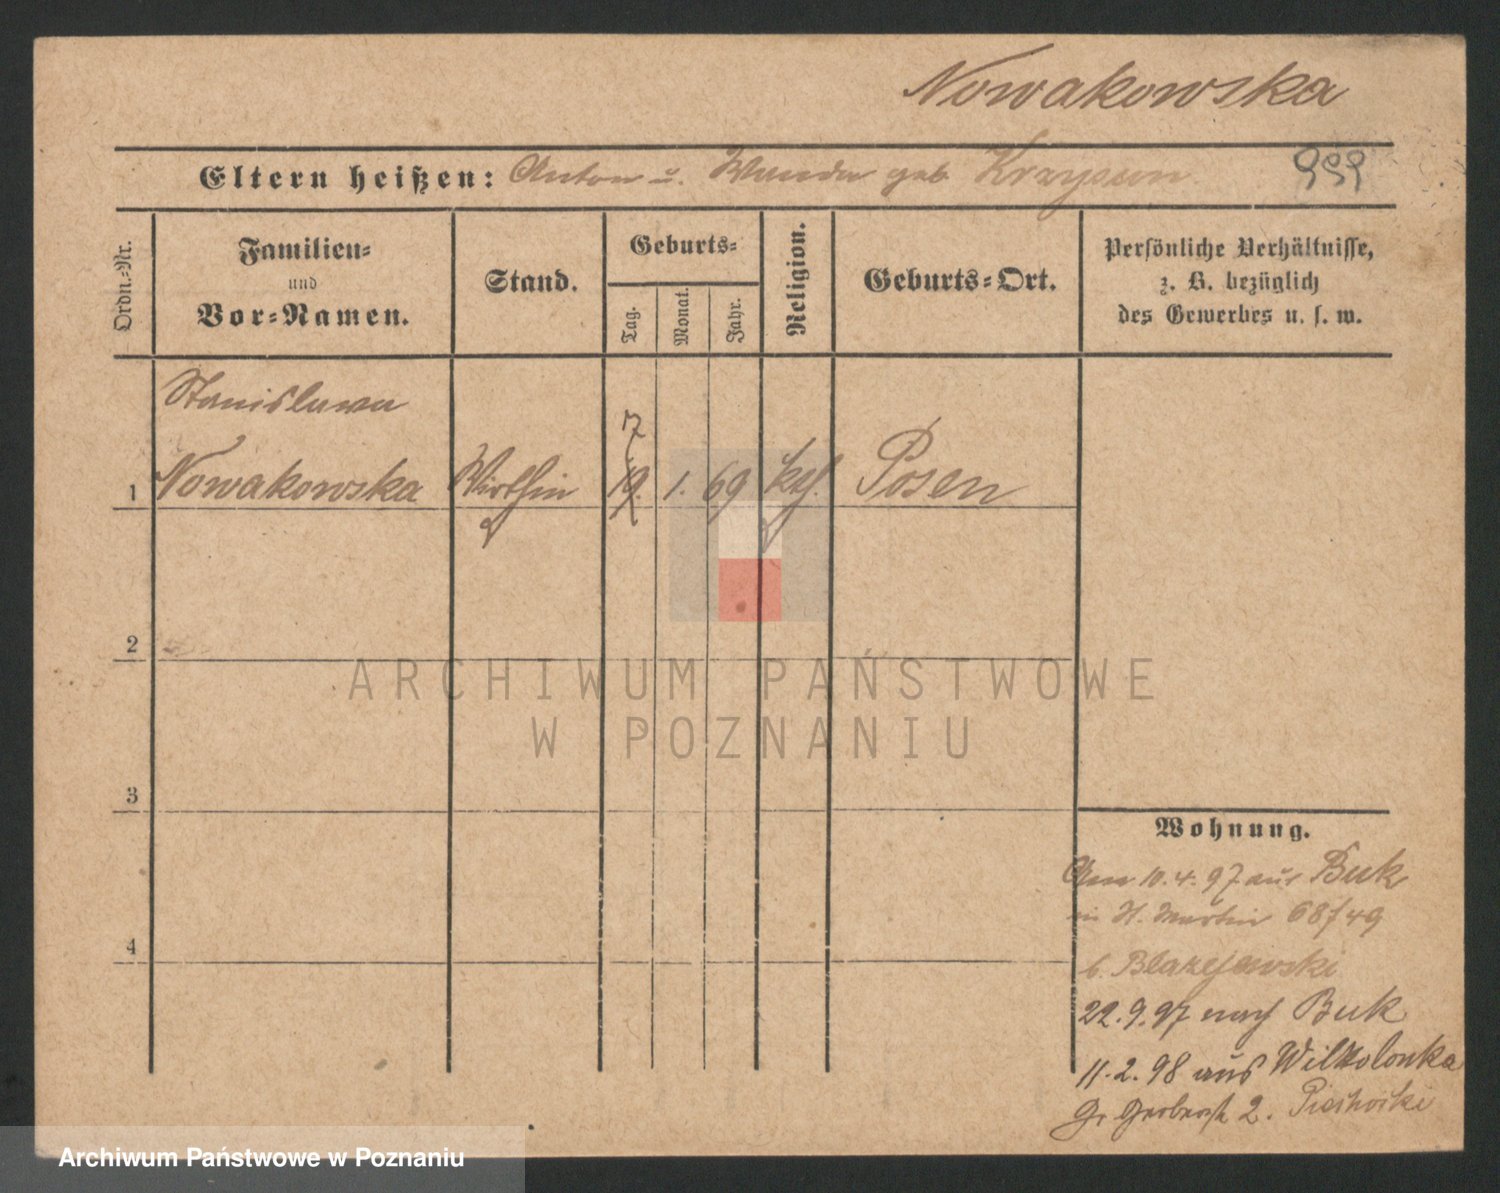 Nowakowska
Eltern heißen: Anton u. Wanda geb
Ordn.-Nr.
Familien-
und
Vor-Namen.
Stand.
Geburts-
Tag.
Monat.
Jahr.
Religion.
Geburts-Ort.
Persönliche Verhältnisse,
z. B. bezüglich
des Gewerbes u. s. w.
Stanislawa
7
1 Nowakowska Wirthin 19. 1. 69 kth. Posen
2
3
4
Wohnung.
Am 10.4.97 aus Buk
in St. Martin 68/49
b. Blazejewski
22.9.97 nach Buk
11.2.98 aus
Gr Gerberstr 2.
ARCHIWUM PAŃSTWOWE
W POZNANIU
Archiwum Państwowe w Poznaniu